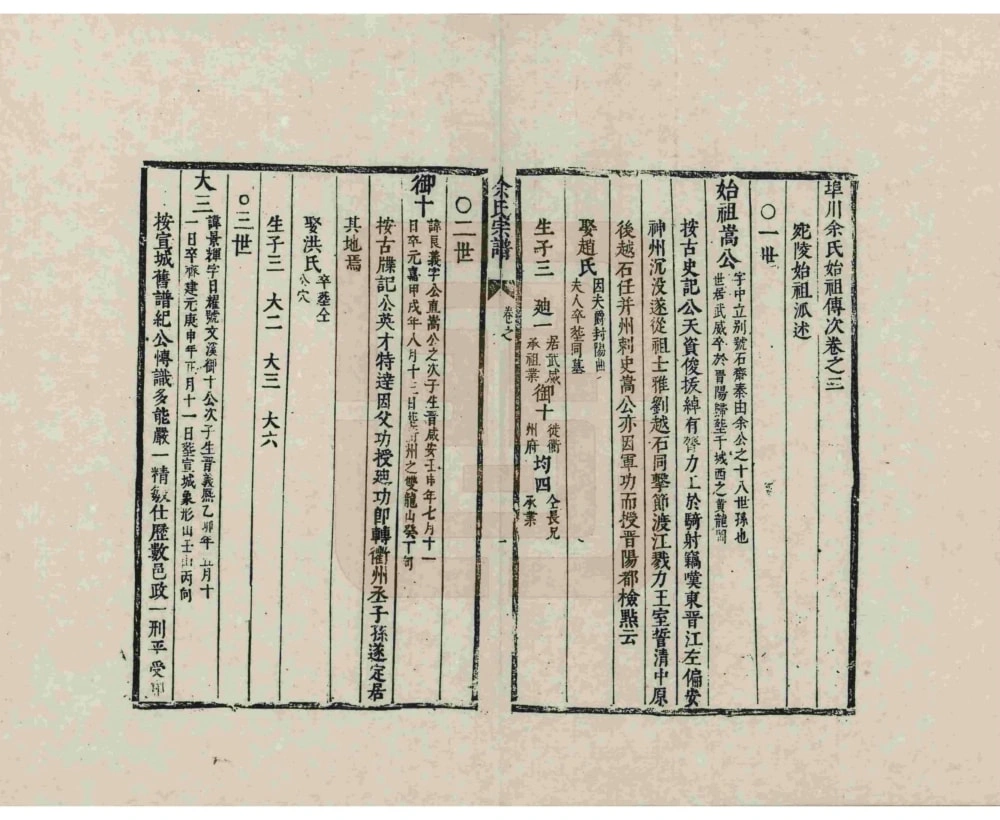 埠川余氏始祖傳次卷之三
宛陵始祖派述
○一世
始祖嵩公
字中立別號石齋秦由余公之十八世孫也
世居武威卒於晋陽歸塟于城西之黄龍
按古史記公天資俊拔綽有膂力工於騎射竊嘆東晋江左偏安
神州沉没遂從祖士雅劉越石同擊節渡江戮力王室誓清中原
後越石任并州刺史嵩公亦因軍功而授晋陽都檢㸃云
娶趙氏
因夫爵封陽曲
夫人卒塟同墓
生子三 廸一 居武威承祖業 御十 徙衢州府 均四 仝長兄承業
余氏宗譜
卷之
○二世
御十
諱良義字公直嵩公之次子生晋咸安壬申年七月十一
日卒元嘉甲戌年八月十三日塟衢州之雙龍山癸丁向
按古牒記公英才特達因父功授廸功郎轉衢州丞子孫遂定居
其地焉
娶洪氏
卒塟仝
公穴
生子三 大二 大三 大六
○三世
大三
諱景輝字日耀號文溪御十公次子生晋義熈乙卯年五月十
一日卒齊建元庚申年正月十一日塟宣城象形山壬山丙向
按宣城舊譜紀公博識多能嚴一精敏仕歷數邑政一刑平受